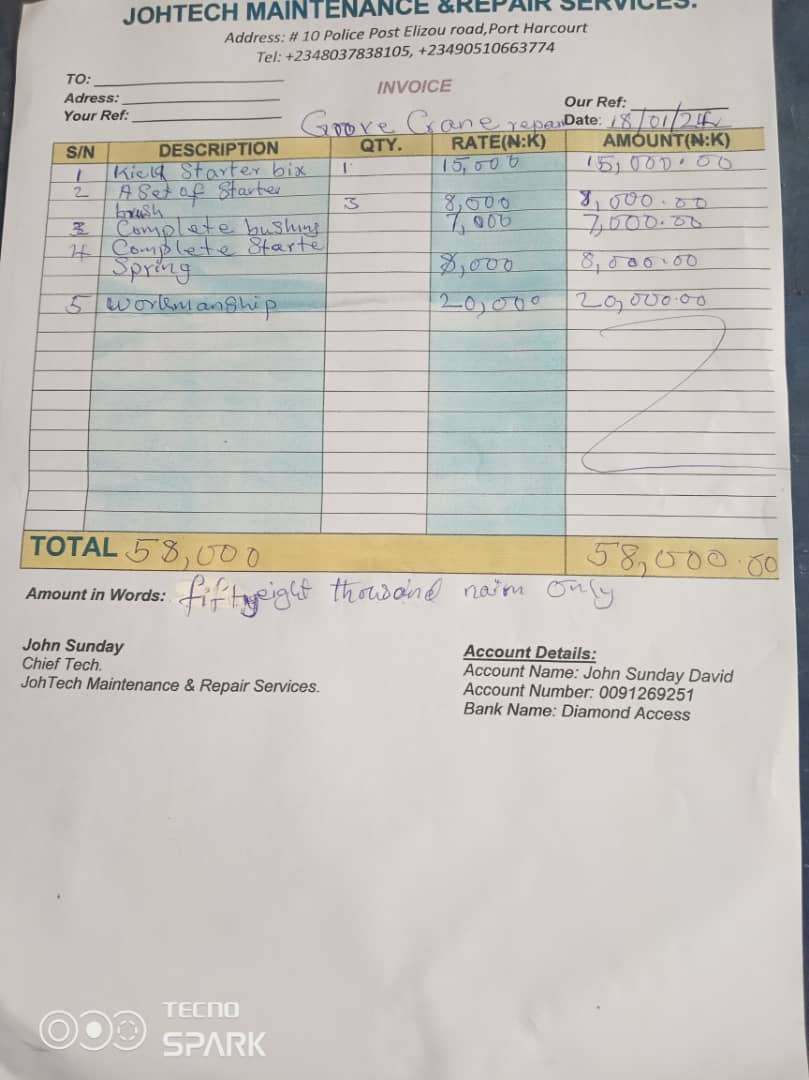 JOHTECH MAINTENANCE &REPAIR SERVICES.
Address: # 10 Police Post Elizou road,Port Harcourt
Tel: +2348037838105, +23490510663774
TO:
INVOICE
Adress:
Our Ref:
Your Ref:
Groove Crane repair
Date: 18/01/24
S/N DESCRIPTION QTY. RATE(₦:K) AMOUNT(₦:K)
1 Starter 1 15,000 15,000.00
2 A Set of Starter
brush 3 8,000 8,000.00
3 Complete bushing 7,000 7,000.00
4 Complete Starte
Spring 8,000 8,000.00
5 Workmanship 20,000 20,000.00
TOTAL 58,000 58,000.00
Amount in Words: fiftyeight thousand naira only
John Sunday
Chief Tech.
JohTech Maintenance & Repair Services.
Account Details:
Account Name: John Sunday David
Account Number: 0091269251
Bank Name: Diamond Access
TECNO
SPARK